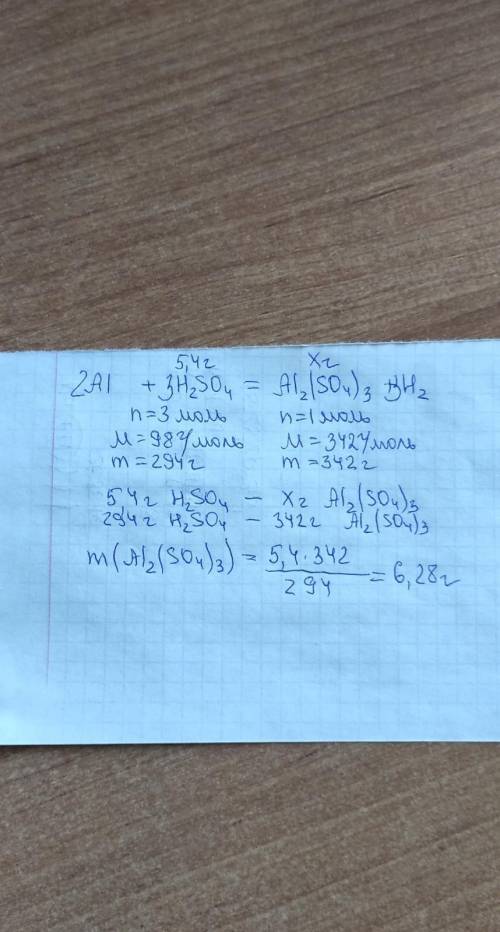 5,4г хг
2Al + 3H₂SO₄ = Al₂(SO₄)₃ + 3H₂
n=3 моль n=1 моль
M=98г/моль M=342г/моль
m=294г m=342г
5,4г H₂SO₄ – хг Al₂(SO₄)₃
294г H₂SO₄ – 342г Al₂(SO₄)₃
m(Al₂(SO₄)₃) = 5,4·342
294
= 6,28г